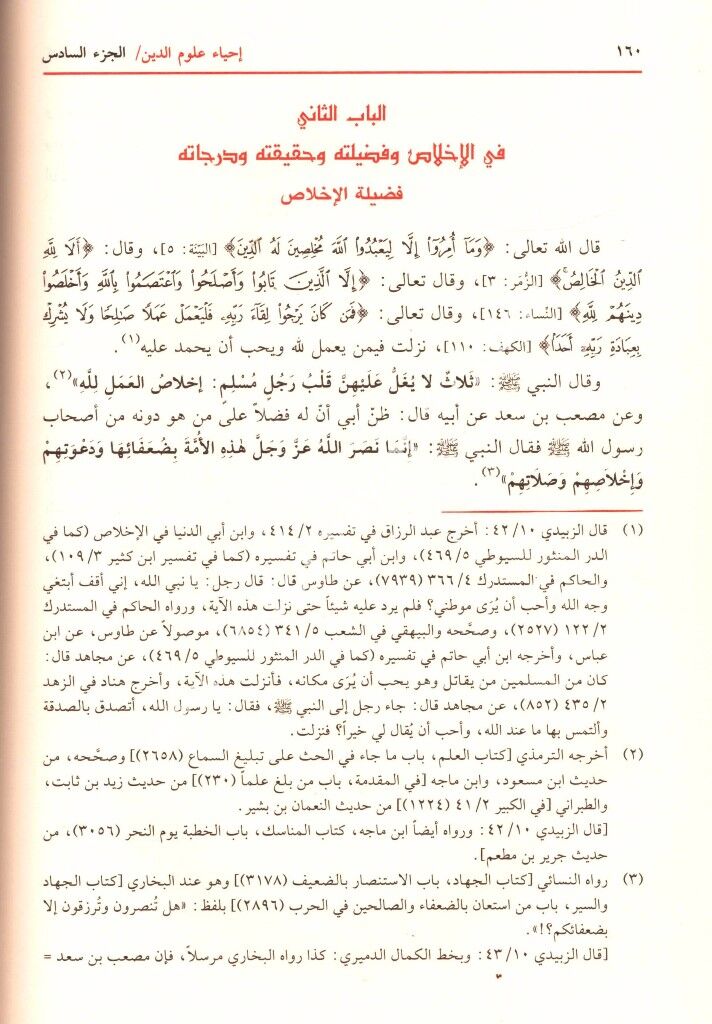 ١٦٠ إحياء علوم الدين/ الجزء السادس
الباب الثاني
في الإخلاص وفضيلته وحقيقته ودرجاته
فضيلة الإخلاص
قال الله تعالى: ﴿وَمَآ أُمِرُوٓاْ إِلَّا لِيَعْبُدُواْ ٱللَّهَ مُخْلِصِينَ لَهُ ٱلدِّينَ﴾ [البَيّنَة: ٥]، وقال: ﴿أَلَا لِلَّهِ
ٱلدِّينُ ٱلْخَالِصُ﴾ [الزُّمَر: ٣]، وقال تعالى: ﴿إِلَّا ٱلَّذِينَ تَابُواْ وَأَصْلَحُواْ وَٱعْتَصَمُواْ بِٱللَّهِ وَأَخْلَصُواْ
دِينَهُمْ لِلَّهِ﴾ [النِّساء: ١٤٦]، وقال تعالى: ﴿فَمَن كَانَ يَرْجُواْ لِقَآءَ رَبِّهِۦ فَلْيَعْمَلْ عَمَلًا صَٰلِحًا وَلَا يُشْرِكْ
بِعِبَادَةِ رَبِّهِۦٓ أَحَدًا﴾ [الكهف: ١١٠]، نزلت فيمن يعمل لله ويحب أن يحمد عليه(١).
وقال النبي ﷺ: «ثَلاثٌ لا يُغَلُّ عَلَيْهِنَّ قَلْبُ رَجُلٍ مُسْلِمٍ: إخلاصُ العَمَلِ لِلَّهِ»(٢)،
وعن مصعب بن سعد عن أبيه قال: ظنّ أبي أنّ له فضلاً على من هو دونه من أصحاب
رسول الله ﷺ فقال النبي ﷺ: «إنَّمَا نَصَرَ اللَّهُ عَزَّ وَجَلَّ هٰذِهِ الأُمَّةَ بِضُعَفَائِهَا وَدَعْوَتِهِمْ
وَإِخْلَاصِهِمْ وَصَلَاتِهِمْ»(٣).
(١) قال الزبيدي ٤٢/١٠: أخرج عبد الرزاق في تفسيره ٤١٤/٢، وابن أبي الدنيا في الإخلاص (كما في
الدر المنثور للسيوطي ٤٦٩/٥)، وابن أبي حاتم في تفسيره (كما في تفسير ابن كثير ١٠٩/٣)،
والحاكم في المستدرك ٣٦٦/٤ (٧٩٣٩)، عن طاوس قال: قال رجل: يا نبي الله، إني أقف أبتغي
وجه الله وأحب أن يُرَى موطني؟ فلم يرد عليه شيئاً حتى نزلت هذه الآية، ورواه الحاكم في المستدرك
١٢٢/٢ (٢٥٢٧)، وصحَّحه والبيهقي في الشعب ٣٤١/٥ (٦٨٥٤)، موصولاً عن طاوس، عن ابن
عباس، وأخرجه ابن أبي حاتم في تفسيره (كما في الدر المنثور للسيوطي ٤٦٩/٥)، عن مجاهد قال:
كان من المسلمين من يقاتل وهو يحب أن يُرَى مكانه، فأنزلت هذه الآية، وأخرج هناد في الزهد
٤٣٥/٢ (٨٥٢)، عن مجاهد قال: جاء رجل إلى النبي ﷺ، فقال: يا رسول الله، أتصدق بالصدقة
وألتمس بها ما عند الله، وأحب أن يُقال لي خيراً؟ فنزلت.
(٢) أخرجه الترمذي [كتاب العلم، باب ما جاء في الحث على تبليغ السماع (٢٦٥٨)] وصحَّحه، من
حديث ابن مسعود، وابن ماجه [في المقدمة، باب من بلغ علماً (٢٣٠)] من حديث زيد بن ثابت،
والطبراني [في الكبير ٤١/٢ (١٢٢٤)] من حديث النعمان بن بشير.
[قال الزبيدي ٤٢/١٠: ورواه أيضاً ابن ماجه، كتاب المناسك، باب الخطبة يوم النحر (٣٠٥٦)، من
حديث جرير بن مطعم].
(٣) رواه النسائي [كتاب الجهاد، باب الاستنصار بالضعيف (٣١٧٨)] وهو عند البخاري [كتاب الجهاد
والسير، باب من استعان بالضعفاء والصالحين في الحرب (٢٨٩٦)] بلفظ: «هل تُنصرون وتُرزقون إلا
بضعفائكم؟!».
[قال الزبيدي ٤٣/١٠: وبخط الكمال الدميري: كذا رواه البخاري مرسلاً، فإن مصعب بن سعد =